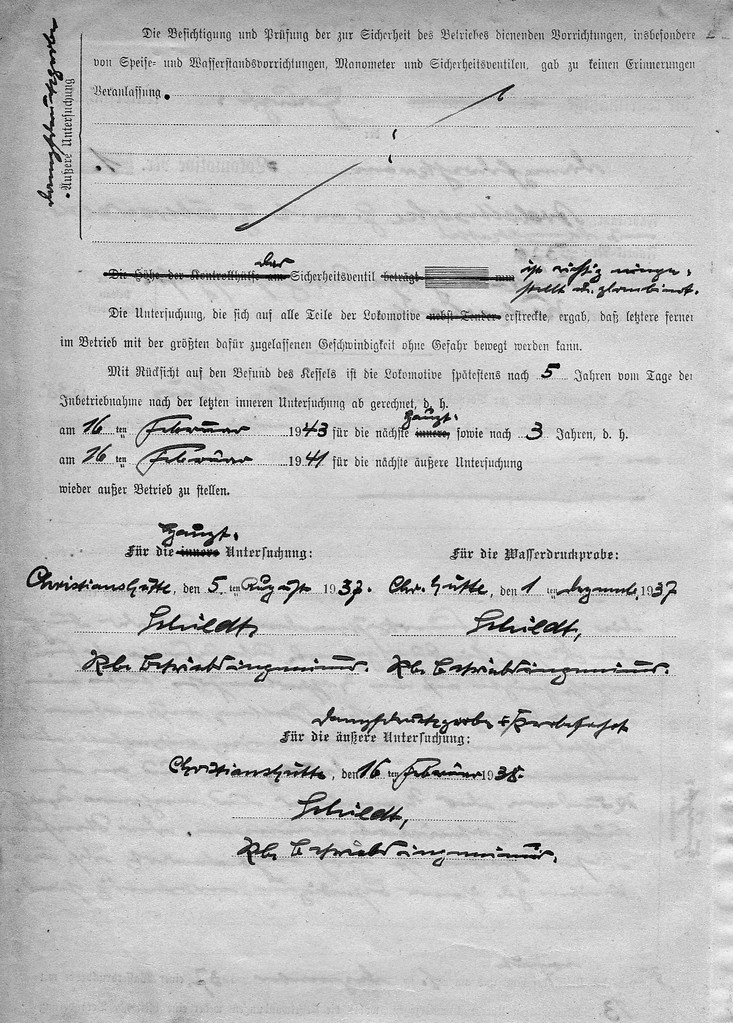 Dampfdruckprobe
Äußere Untersuchung
Die Besichtigung und Prüfung der zur Sicherheit des Betriebes dienenden Vorrichtungen, insbesondere
von Speise- und Wasserstandsvorrichtungen, Manometer und Sicherheitsventilen, gab zu keinen Erinnerungen
Veranlassung.
das
Die Höhe der Kontrollhülse am Sicherheitsventil beträgt mm ist richtig einge-
stellt u. plombiert.
Die Untersuchung, die sich auf alle Teile der Lokomotive nebst Tender erstreckte, ergab, daß letztere ferner
im Betrieb mit der größten dafür zugelassenen Geschwindigkeit ohne Gefahr bewegt werden kann.
Mit Rücksicht auf den Befund des Kessels ist die Lokomotive spätestens nach 5 Jahren vom Tage der
Inbetriebnahme nach der letzten inneren Untersuchung ab gerechnet, d. h.
Haupt-
am 16 ten Februar 1943 für die nächste innere, sowie nach 3 Jahren, d. h.
am 16 ten Februar 1941 für die nächste äußere Untersuchung
wieder außer Betrieb zu stellen.
Haupt-
Für die innere Untersuchung: Für die Wasserdruckprobe:
Christianshütte, den 5. ten August 1937. Chr. Hütte, den 1 ten Dezemb. 1937
Schildt, Schildt,
Rb. Betriebsingenieur. Rb. Betriebsingenieur.
Dampfdruckprobe + Probefahrt
Für die äußere Untersuchung:
Christianshütte, den 16 ten Februar 1938.
Schildt,
Rb. Betriebsingenieur.